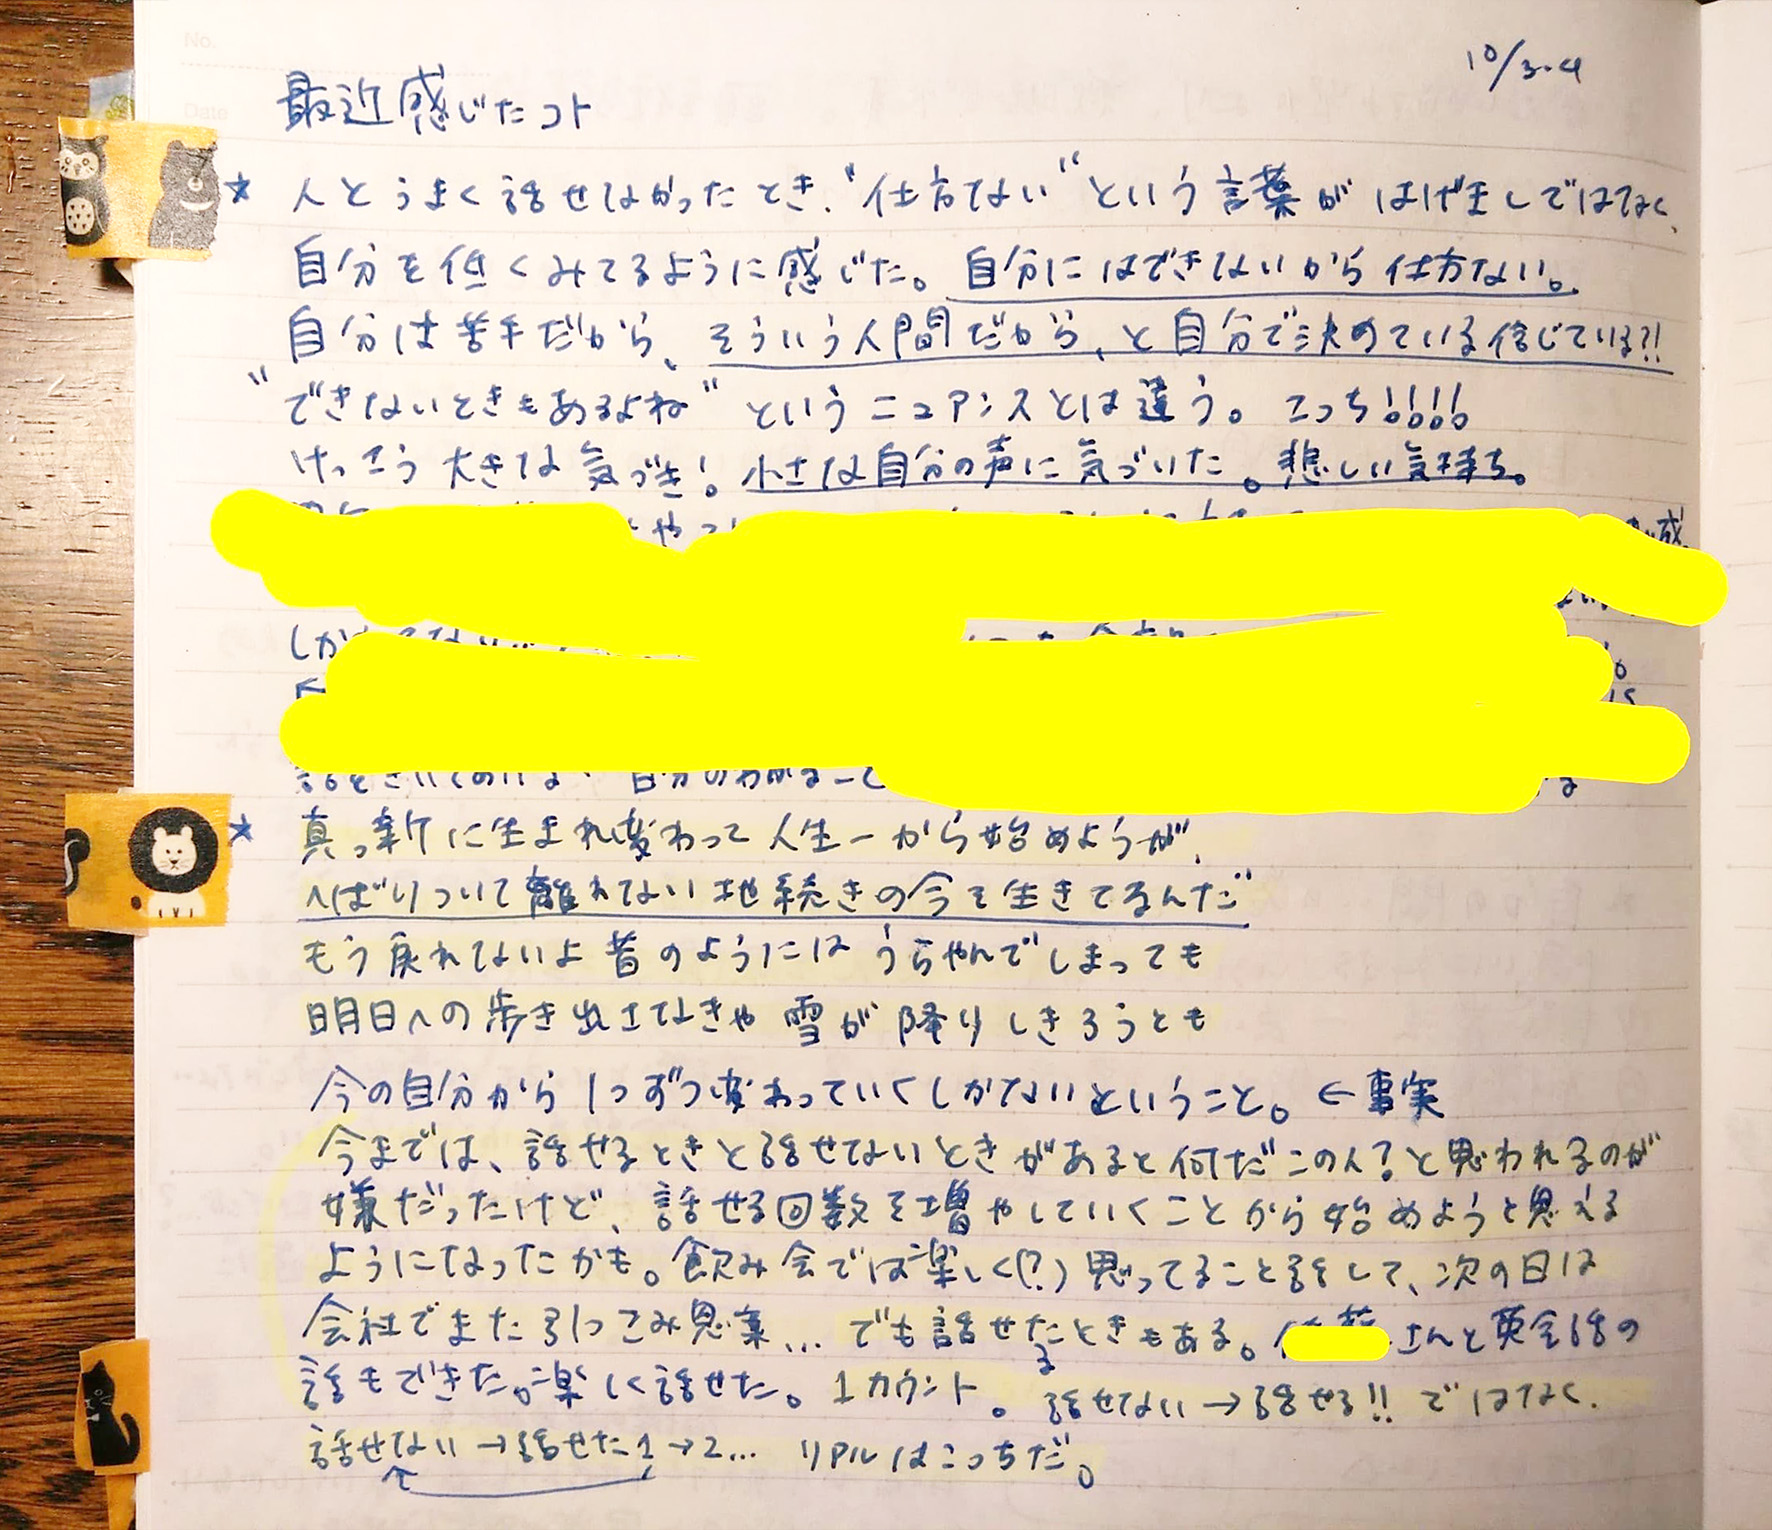 No.
Date
10/3.4
最近感じたコト
★ 人とうまく話せなかったとき、"仕方ない"という言葉がはげましではなく、
自分を低くみてるように感じた。自分にはできないから仕方ない。
自分は苦手だから、そういう人間だから、と自分で決めている信じている?!
"できないときもあるよね"というニュアンスとは違う。こっち!!!!
けっこう大きな気づき!小さな自分の声に気づいた。悲しい気持ち。
★ 真っ新に生まれ変わって人生一から始めようが、
へばりついて離れない地続きの今を生きてるんだ
もう戻れないよ昔のようには うらやんでしまっても
明日への歩き出さなきゃ 雪が降りしきろうとも
今の自分から1つずつ変わっていくしかないということ。←事実
今までは、話せるときと話せないときがあると何だこの人?と思われるのが
嫌だったけど、話せる回数を増やしていくことから始めようと思える
ようになったかも。飲み会では楽しく(?)思ってること話して、次の日は
会社でまた引っこみ思案... でも話せたときもある。 さんと英会話の
る
話もできた。楽しく話せた。1カウント。話せない→話せる!!ではなく、
話せない→話せた1→2... リアルはこっちだ。